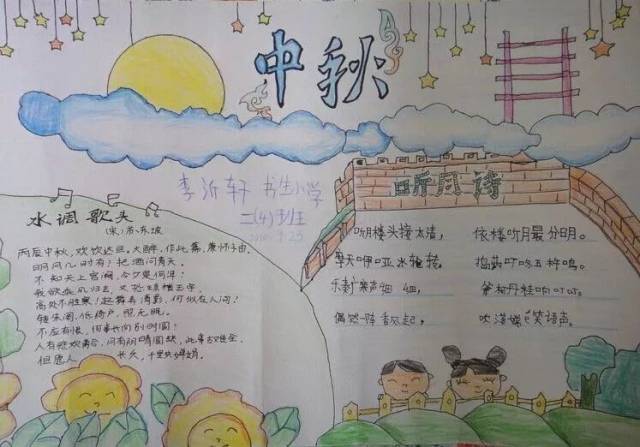 中秋
李沂轩 书生小学
二(4)班
水调歌头
(宋)苏东坡
丙辰中秋，欢饮达旦，大醉，作此篇，兼怀子由。
明月几时有？把酒问青天。
不知天上宫阙，今夕是何年？
我欲乘风归去，又恐琼楼玉宇，
高处不胜寒！起舞弄清影，何似在人间！
转朱阁，低绮户，照无眠。
不应有恨，何事长向别时圆？
人有悲欢离合，月有阴晴圆缺，此事古难全。
但愿人 长久，千里共婵娟。
听月诗
听月楼头接太清， 依楼听月最分明。
摩天咿哑冰轮转， 捣药叮咚玉杵鸣。
乐奏广寒声细细， 斧柯丹桂响叮叮。
偶然一阵香风起， 吹落嫦娥笑语声。